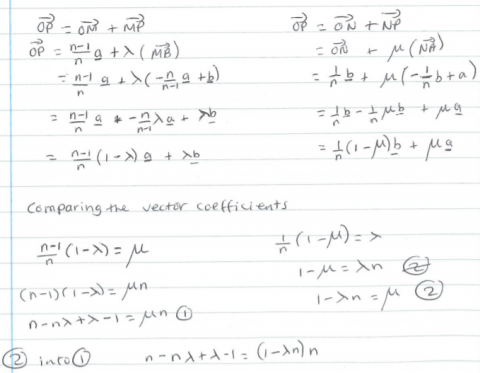 OP⃗ = OM⃗ + MP⃗
OP⃗ = n-1/n a + λ(MB⃗)
= n-1/n a + λ(-n/n-1 a + b)
= n-1/n a + -n/n-1 λa + λb
= n-1/n (1-λ) a + λb
OP⃗ = ON⃗ + NP⃗
= ON⃗ + μ(NA⃗)
= 1/n b + μ(-1/n b + a)
= 1/n b - 1/n μb + μa
= 1/n (1-μ) b + μa
Comparing the vector coefficients
n-1/n (1-λ) = μ
(n-1)(1-λ) = μn
n-nλ+λ-1 = μn ①
1/n (1-μ) = λ
1-μ = λn
1-λn = μ ②
② into ① n-nλ+λ-1 = (1-λn)n